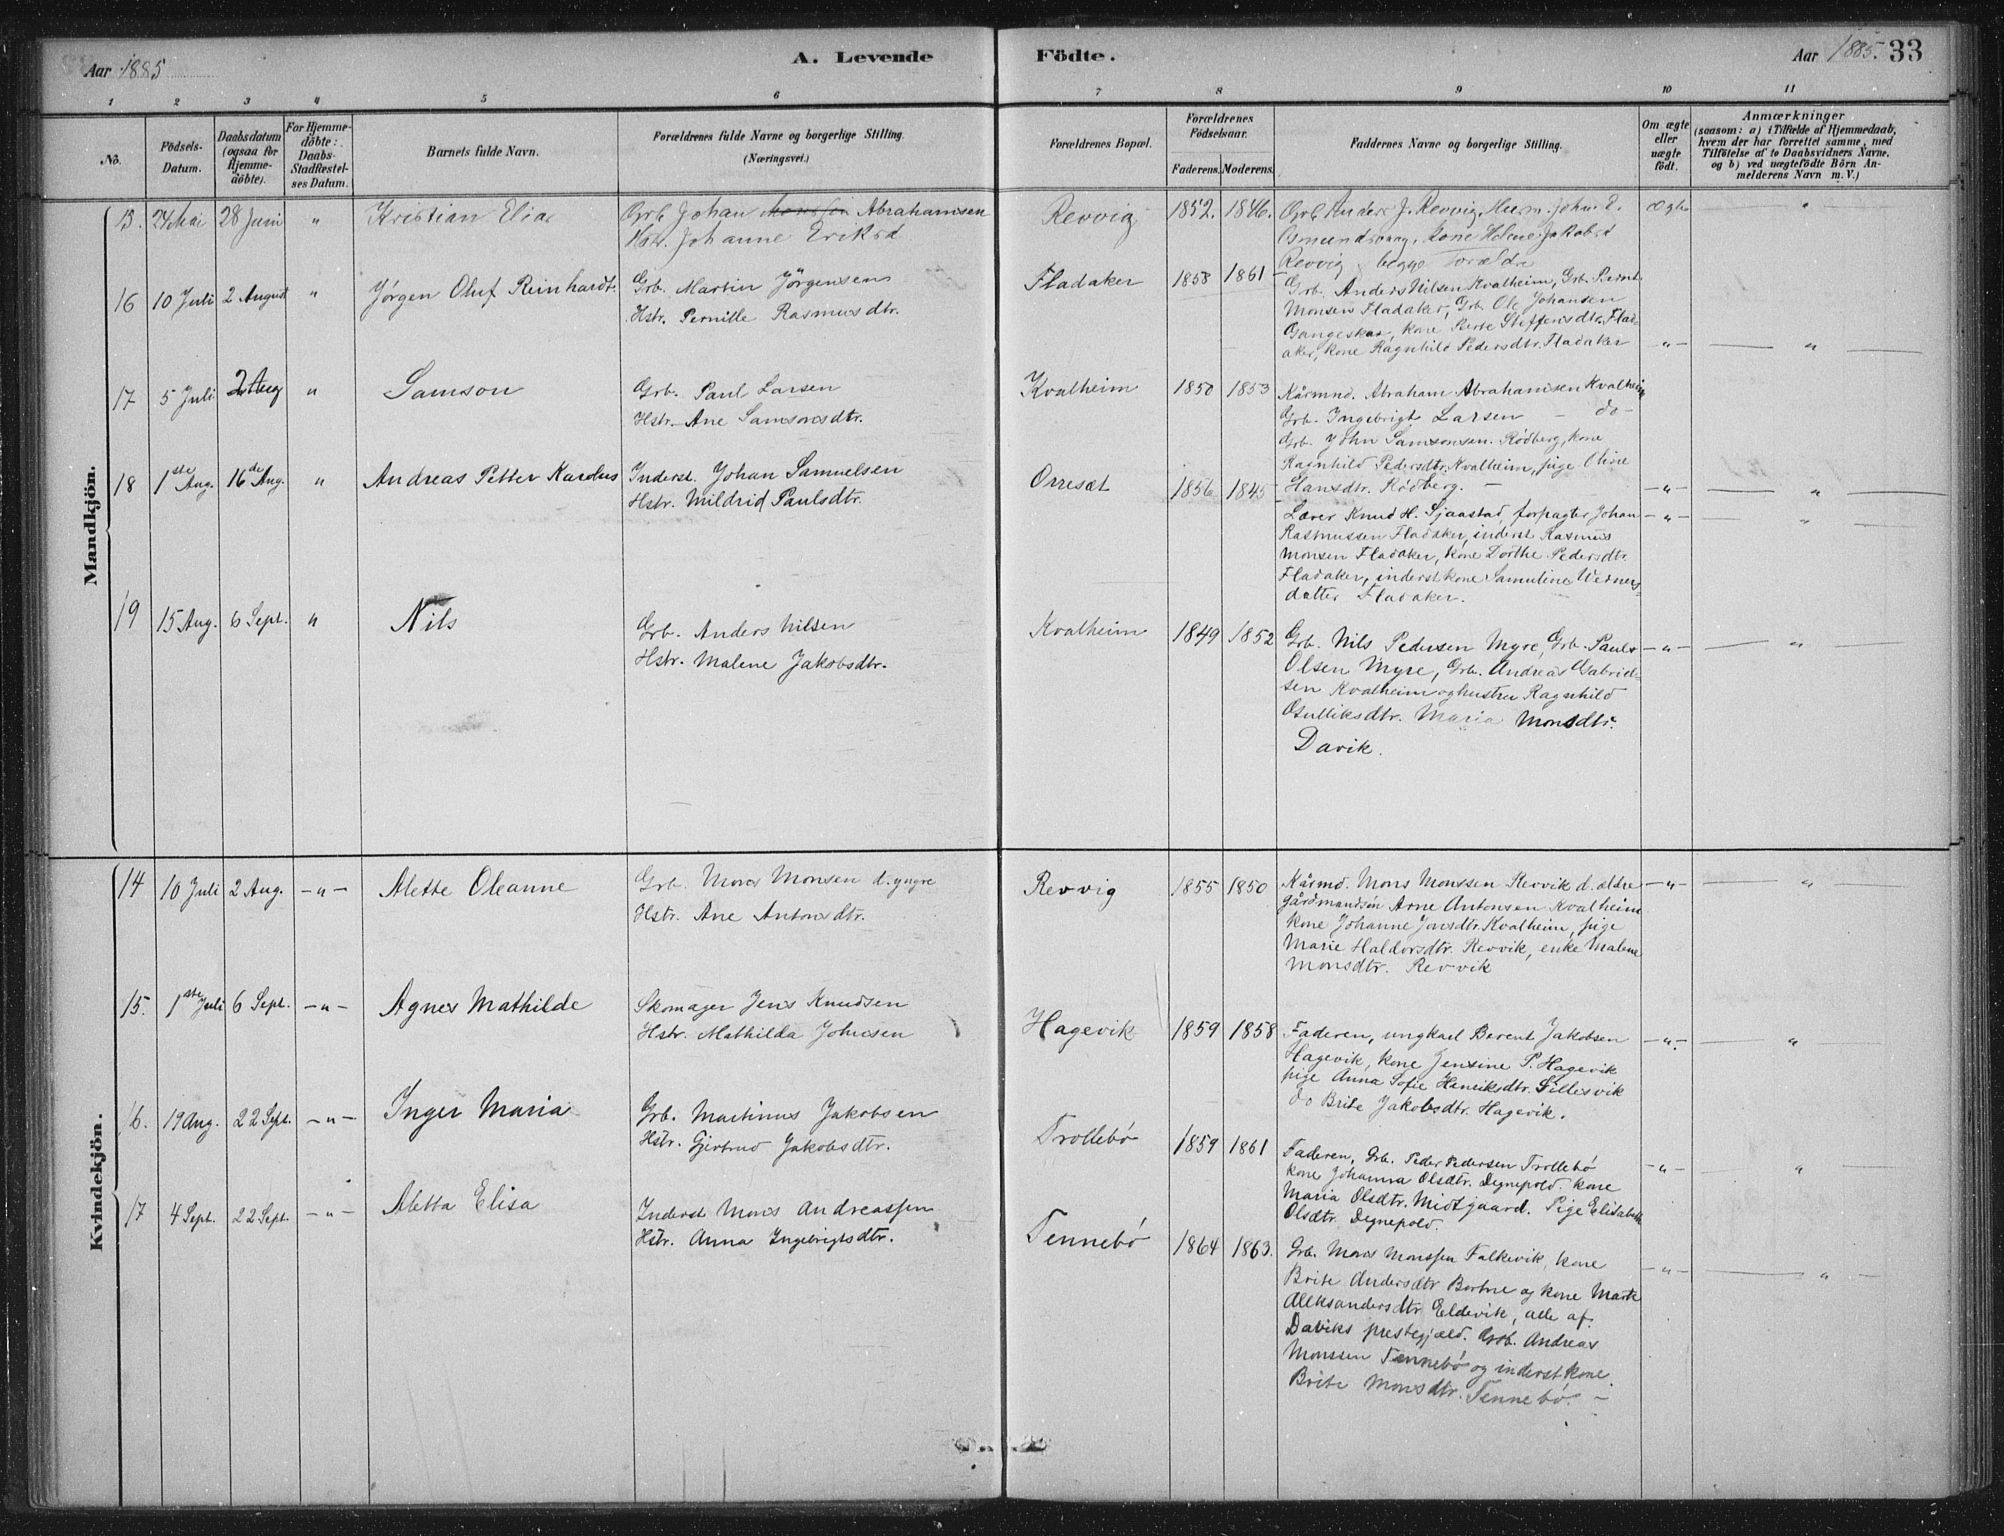 Aar 1885
A. Levende
Födte.
Aar 1885. 33
1 2 3 4 5 6 7 8 9 10 11
No.
Födsels-Datum.
Daabsdatum (ogsaa for Hjemme-döbte).
For Hjemme-döbte: Daabs-Stadfæstel-ses Datum.
Barnets fulde Navn.
Forældrenes fulde Navne og borgerlige Stilling. (Næringsvei.)
Forældrenes Bopæl.
Forældrenes Födselsaar.
Faderens. Moderens.
Faddernes Navne og borgerlige Stilling.
Om ægte eller uægte födt.
Anmærkninger
(saasom: a) i Tilfælde af Hjemmedaab, hvem der har forrettet samme, med Tilföielse af to Daabsvidners Navne, og b) ved uægtefödte Börn An-melderens Navn m. V.)
Mandkjön.
15. 24 Mai 28 Juni " Kristian Elias
Grb. Johan Monssen Abrahamsen
Hstr. Johanne Eriksd
Revvig 1852. 1846.
Grb Anders J. Revvig, Husm. John E.
Osmundsvaag, Kone Helene Jakobsd
Revvig, begge Forældre
ægte "
16 10 Juli 2 August " Jörgen Oluf Reinhardt.
Grb. Martin Jörgensen
Hstr. Pernille Rasmusdtr.
Fladaker 1858 1861
Grb. Anders Nilsen Kvalheim, Grb. Bernt
Monsen Fladaker, Grb. Ole Johansen
Gangeskar, kone Berte Steffensdtr. Flad-
aker, kone Ragnhild Pedersdtr. Fladaker
-"- "
17 5 Juli 2 Aug " Samson
Grb. Paul Larsen
Hstr. Ane Samsonsdtr.
Kvalheim 1850 1853
Kårmnd. Abraham Abrahamsen Kvalheim
Grb. Ingebrigt Larsen - do -
Grb. John Samsonsen Rödberg, kone
Ragnhild Pedersdtr. Kvalheim, pige Oline
Hansdtr. Rödberg. -
-"- "
18 1ste Aug. 16de Aug. " Andreas Petter Kardus
Inderst Johan Samuelsen
Hstr. Mildrid Paulsdtr.
Orresæt 1856 1845
Lærer Knud H. Sjaastad, forpagter Johan
Rasmussen Fladaker, inderst Rasmus
Monsen Fladaker, kone Dorthe Pedersdtr.
Fladaker, inderstkone Samuline Werners-
datter Fladaker.
-"- "
19 15 Aug. 6 Sept. " Nils
Grb. Anders Nilsen
Hstr. Malene Jakobsdtr.
Kvalheim 1849 1852
Grb. Nils Pedersen Myre, Grb. Pauls
Olsen Myre, Grb. Andreas Gabriel-
sen Kvalheim og hustru Ragnhild
Maria Monsdtr.
Davik.
-"- "
Kvindekjön.
14 10 Juli 2 Aug. -"- Alette Oleanne
Grb. Mons Monsen d. yngre
Hstr. Ane Antonsdtr.
Revvig 1855 1850
Kårmd. Mons Monssen Revvik d. ældre
gårdmandsön Arne Antonsen Kvalheim
kone Johanne Jonsdtr. Kvalheim, pige
Marie Haldorsdtr. Revvik, enke Malene
Monsdtr. Revvik
-"- "
15. 1ste Juli 6 Sept. -"- Agnes Mathilde
Skomager Jens Knudsen
Hstr. Mathilda Johnsen
Hagevik 1859 1858
Faderen, ungkarl Berent Jakobsen
Hagevik, kone Jensine P. Hagevik
pige Anna Sofie Henriksdtr. Sillesvik
do Brite Jakobsdtr. Hagevik.
-"- "
16. 19 Aug. 22 Sept. -"- Inger Maria
Grb. Martinus Jakobsen
Hstr. Gjertrud Jakobsdtr.
Trollebö 1859 1861
Faderen, Grb. Peder Pedersen Trollebö
kone Johanna Olsdtr. Degnepold. kone
Maria Olsdtr. Midtgaard. Pige Elisabeth
Olsdtr. Degnepold.
-"- "
17 4 Sept. 22 Sept. -"- Aletta Elisa
Inderst Mons Andreassen
Hstr. Anna Ingebrigtsdtr.
Tennebö 1864 1863.
Grb. Mons Monssen Falkevik, kone
Brite Andersdtr Bortne og kone Marte
Aleksandersdtr Eldevik, alle af
Daviks prestegjæld. Grb. Andreas
Monssen Tennebö og inderstkone
Brite Monsdtr. Tennebö. -
-"- "